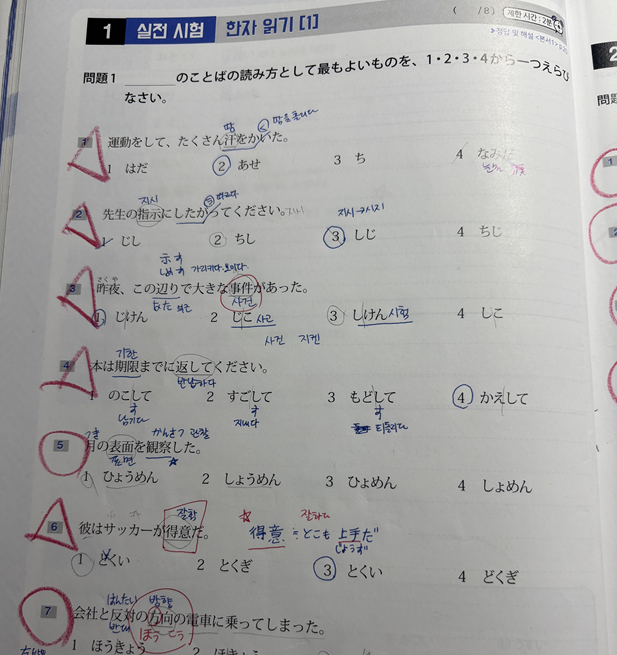 ( /8) 제한 시간: 2분
1 실전 시험 한자 읽기 [1]
정답 및 해설
問題1 ＿＿＿のことばの読み方として最もよいものを、1・2・3・4から一つえらび
なさい。
땀 땀을 흘리다
1 運動をして、たくさん汗をかいた。
1 はだ 2 あせ 3 ち 4 なみだ
눈물
지시 따르다 지시→시지
2 先生の指示にしたがってください。 지시
1 じし 2 ちし 3 しじ 4 ちじ
示す
しめす 가리키다, 보이다
さくや
3 昨夜、この辺りで大きな事件があった。
사건
1 じけん 2 じこ 사고 3 しけん 시험 4 しこ
사건 지켄
기한
4 本は期限までに返してください。
반납하다
1 のこして 2 すごして 3 もどして 4 かえして
す す す
남기다 지내다 되돌리다
つき かんさつ 관찰
5 月の表面を観察した。
표면
1 ひょうめん 2 しょうめん 3 ひょめん 4 しょめん
잘함 잘하다
6 彼はサッカーが得意だ。
得意 とても 上手だ
じょうず
1 とくい 2 とくぎ 3 どくい 4 どくぎ
はんたい 방향
7 会社と反対の方向の電車に乗ってしまった。
반대 ほうこう
1 ほうきょう
2
問題
1
2